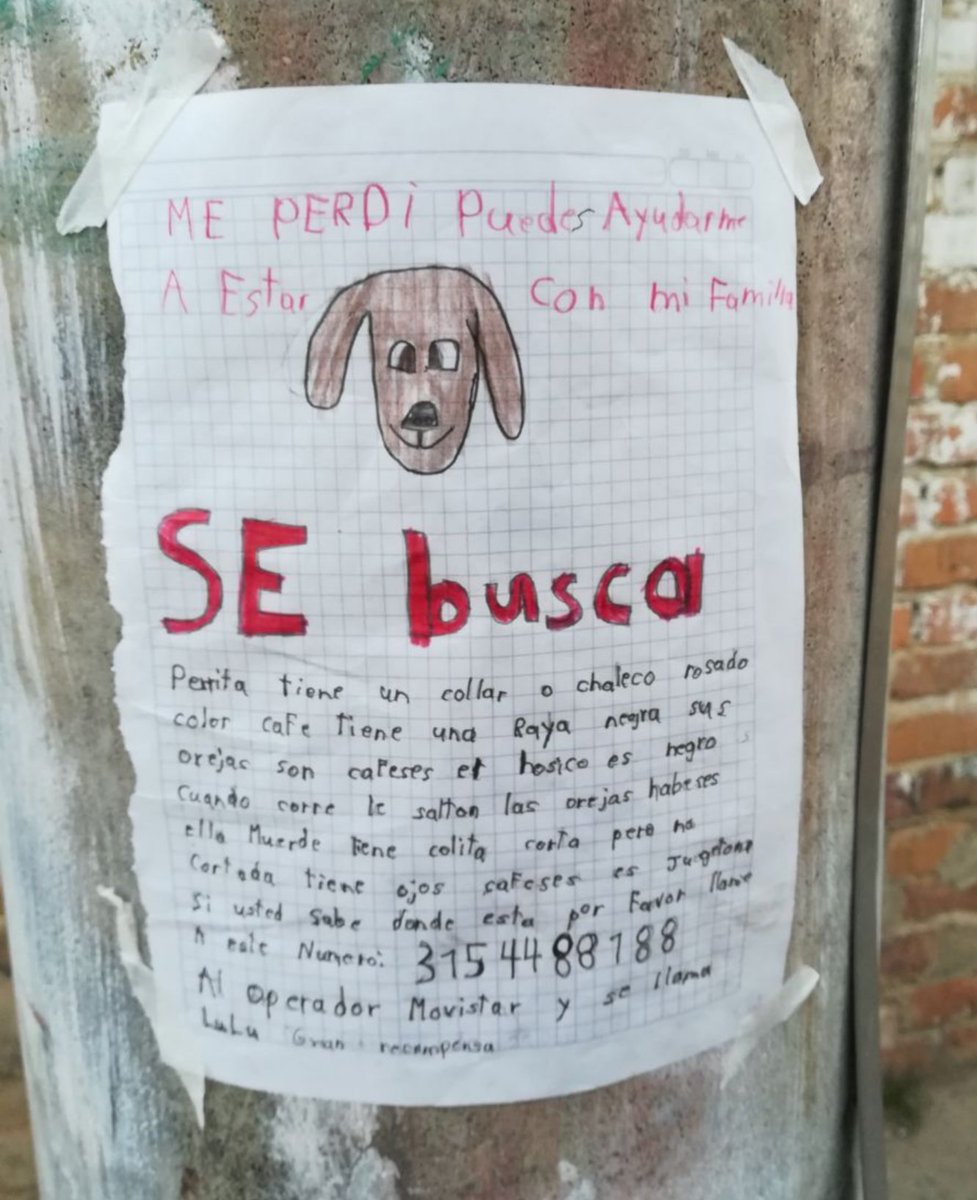 ME PERDi Puedes Ayudarme
A Estar Con mi Familia
SE busca
Perrita tiene un collar o chaleco rosado
color cafe tiene una Raya negra sus
orejas son cafeses el hosico es negro
Cuando corre le saltan las orejas habeses
ella Muerde tiene colita corta pero no
Cortada tiene ojos cafeses es Jugetona
Si usted sabe donde esta por Favor llame
A este Numero: 315 44 88188
Al operador Movistar y se llama
LuLu Gran recompensa